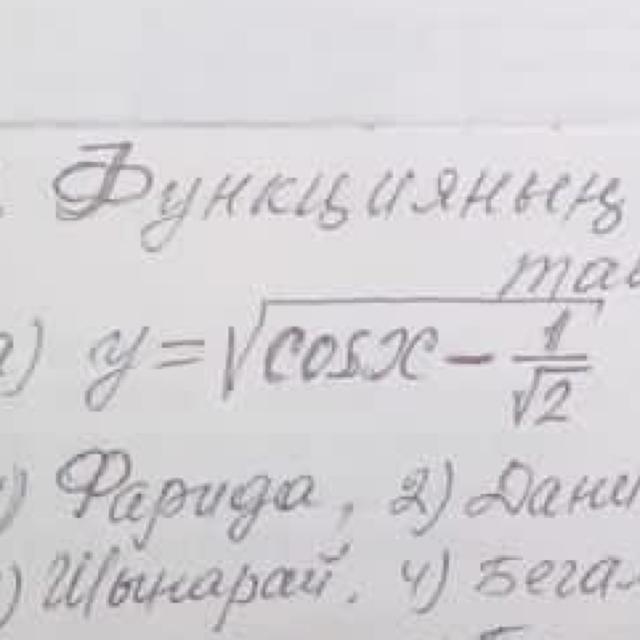 Функцияның
таб
а) y = √(cos x - 1/√2)
1) Фарида, 2) Дани
3) Шынарай. 4) Бегал